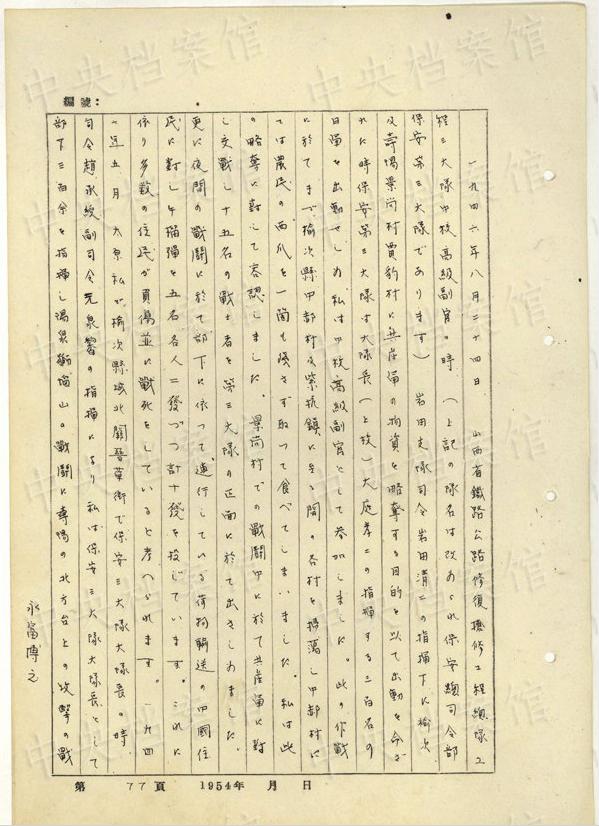 編號:
一九四六年八月二十四日 山西省鐵路公路修復搶修工程總隊工
程三大隊中校高級副官の時 (上記の隊名は改められ保安總司令部
保安第三大隊であります) 岩田支隊司令岩田清一の指揮下に榆次
及壽陽景尚村賈豹村に共産軍の物資を略奪する目的を以て出動を命ぜ
れた時保安第三大隊は大隊長(上校)大庭孝二の指揮する三百名の
日僑を出動せしめ私は中校高級副官として参加しました。此の作戰
に於てまづ榆次縣中郝村及紫坑鎮に至る間の各村を掃蕩し中郝村に
ては農民の西瓜を一箇も残さず取つて食べてしまいました。私は此
の略奪に對して容認しました。景尚村での戰闘中に於て共産軍に対
し交戰し十五名の戰士者を第三大隊の正面に於て出さしめました。
更に夜間の戰闘に於て部下に依つて連行している荷物輸送の中國住
民に対し手榴彈を五名各人二發づつ計十發を投じています。これに
依り多数の住民が負傷並に戰死をしていると考へられます。一九四
年五月 太原私が榆次縣城北關晉華街で保安三大隊大隊長の時
司令趙承綬副司令元泉馨の指揮により私は保安三大隊大隊長として
部下三百余を指揮し 山の戰闘に壽陽の北方台上の攻撃の戰
永富博之
第 77頁 1954年 月 日
中央档案馆